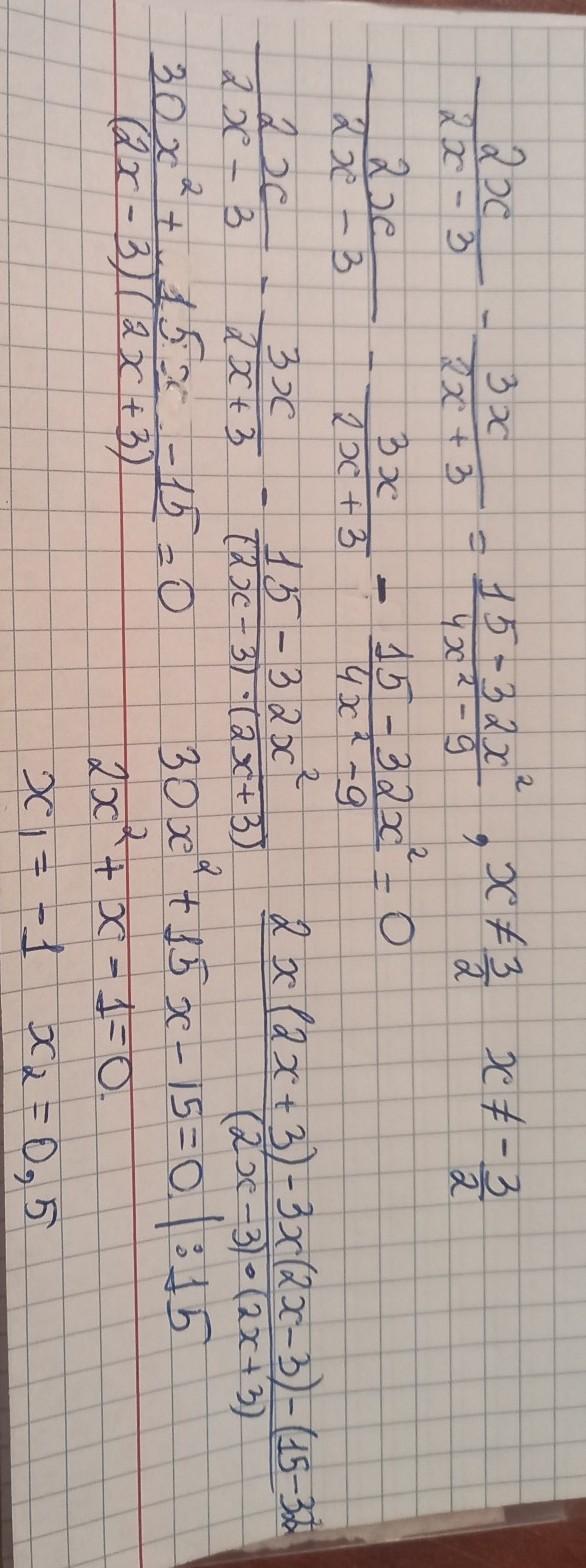 2x/(2x - 3) - 3x/(2x + 3) = (15 - 32x²)/(4x² - 9) , x ≠ 3/2 x ≠ -3/2
2x/(2x - 3) - 3x/(2x + 3) - (15 - 32x²)/(4x² - 9) = 0
2x/(2x - 3) - 3x/(2x + 3) - (15 - 32x²)/((2x - 3)·(2x + 3)) (2x(2x + 3) - 3x(2x - 3) - (15 - 32)/((2x - 3)·(2x + 3))
(30x² + 15x - 15)/((2x - 3)(2x + 3)) = 0 30x² + 15x - 15 = 0 | : 15
2x² + x - 1 = 0.
x₁ = -1 x₂ = 0,5